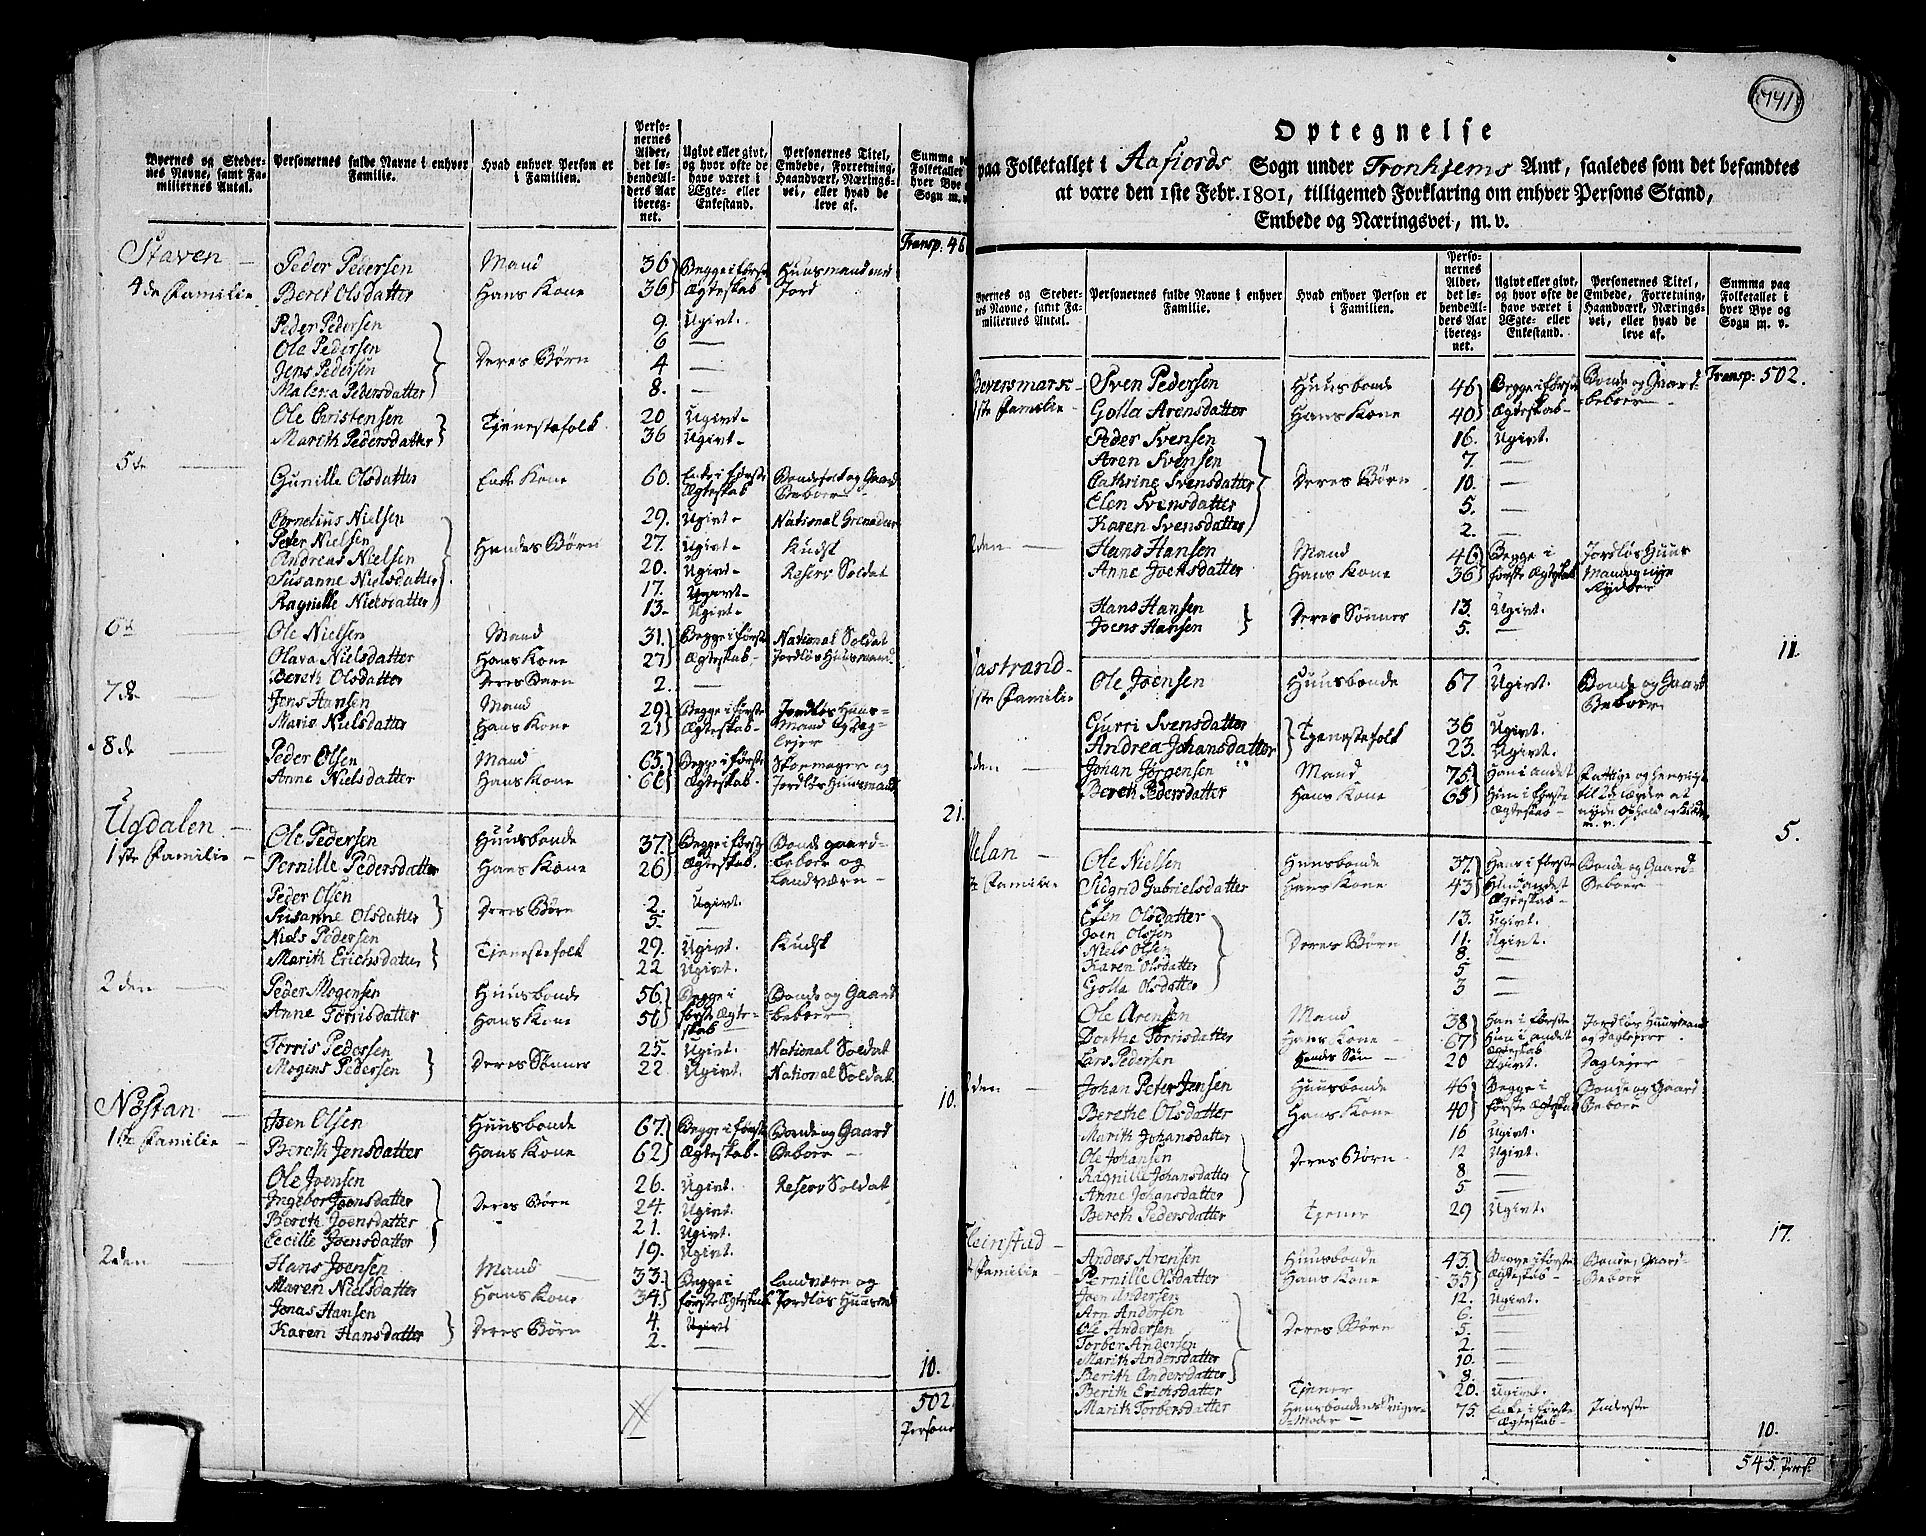 Byernes og Steder-nes Navne, samt Fa-miliernes Antal.
Personernes fulde Navne i enhver Familie.
Hvad enhver Person er i Familien.
Perso-nernes Alder, det lø-bende Al-ders Aar ibereg-net.
Ugivt eller givt, og hvor ofte de have været i Ægte- eller Enkestand.
Personernes Titel, Embede, Forretning, Haandværk, Nærings-vei, eller hvad de leve af.
Folketallet hver Bye Sogn m.
Transp. 46
Staven — Peder Pedersen Mand 36 Begge i første Huusmand med
4de Familie. Bereth Olsdatter Hans Kone 36 Ægteskab Jord
Peder Pedersen 9. Ugivt.
Ole Pedersen 6 —
Jens Pedersen Deres Børn 4 —
Pedersdatter 8. —
Ole Christensen 20 Ugivt
Marith Pedersdatter Tjenestefolk 36 Ugivt
5te Gunille Olsdatter Enke Kone 60. Enke i første Bondefolk og Gaard
Ægteskab Beboer
Cornelius Nielsen 29. Ugivt National Grenadeer
Peter Nielsen 27. Ugivt Kudsk
Andreas Nielsen Hendes Børn 20. Ugivt Reserv Soldat
Susanne Nielsdatter 17. Ugivt
Ragnille Nielsdatter 13. Ugivt
6te Ole Nielsen Mand 31. Begge i første National Soldat
Olava Nielsdatter Hans Kone 27 Ægteskab Jordløs Huusmand
Bereth Olsdatter Deres Barn 2. —
7de Jens Hansen Mand 29 Begge i første Jordløs Huus-
Maria Nielsdatter Hans Kone 21 Ægteskab Mand og Dag-
lejer
8de Peder Olsen Mand 65. Begge i første Skoemager og
Anne Nielsdatter Hans Kone 66 Ægteskab. Jordløs Huusmand
21.
Ugdalen — Ole Pedersen Huusbonde 37. Begge i første Bonde gaard-
1ste Familie — Pernille Pedersdatter Hans Kone 26 Ægteskab. beboer og
Landværn
Peder Olsen 2. Ugivt.
Susanne Olsdatter Deres Børn 5. —
Niels Pedersen 29. Ugivt. Kudsk
Marith Erichsdatter Tjenestefolk 22 Ugivt.
2den Peder Mogensen Huusbonde 56. Begge i Bonde og Gaard
Anne Torrisdatter Hans Kone 56 første Ægte- beboer
skab
Torris Pedersen 25. Ugivt. National Soldat
Mogens Pedersen Deres Sønner 22. Ugivt. National Soldat
10.
Nøstan — Joen Olsen Huusbonde 67. Begge i første Bonde og Gaard
1ste Familie — Bereth Jensdatter Hans Kone 62 Ægteskab. Beboer
Ole Joensen 26. Ugivt. Reserv Soldat
Ingebor Joensdatter 24. Ugivt.
Bereth Joensdatter Deres Børn 21. Ugivt.
Cecille Joensdatter 19. Ugivt
2den Hans Joensen Mand 33. Begge i Landværn og
Maren Nielsdatter Hans Kone 34. første Ægteskab Jordløs Huusmd
Jonas Hansen 4. Ugivt
Karen Hansdatter Deres Børn 2. —
10.
502.
Persone
1741
Optegnelse
paa Folketallet i Aafiords Sogn under Tronhjems Amt, saaledes som det befandtes
at være den 1ste Febr. 1801, tilligemed Forklaring om enhver Persons Stand,
Embede og Næringsvei, m. v.
Byernes og Steder-nes Navne, samt Fa-miliernes Antal.
Personernes fulde Navne i enhver Familie.
Hvad enhver Person er i Familien.
Perso-nernes Alder, det lø-bende Al-ders Aar ibereg-net.
Ugivt eller givt, og hvor ofte de have været i Ægte- eller Enkestand.
Personernes Titel, Embede, Forretning, Haandværk, Nærings-vei, eller hvad de leve af.
Summa paa Folketallet i hver Bye og Sogn m. v.
Transp: 502.
Beversmark Sven Pedersen Huusbonde 46 Begge i første Bonde og Gaard
1ste Familie Golla Arensdatter Hans Kone 40 Ægteskab beboer
Peder Svensen 16. Ugivt.
Aren Svensen 7. —
Cathrine Svensdatter Deres Børn 10. —
Elen Svensdatter 5. —
Karen Svensdatter 2. —
2den Hans Hansen Mand 46 Begge i Jordløs Huus
Anne Joensdatter Hans Kone 36 første Ægteskab Mand og nye
Rydder
Hans Hansen 13. Ugivt.
Joens Hansen Deres Sønner 5. —
11.
astrand Ole Joensen Huusbonde 67 Ugivt. Bonde og Gaard
1ste Familie Beboer
Gurri Svensdatter 36 Ugivt.
Andrea Johansdatter Tjenestefolk 23. Ugivt.
2den Johan Jørgensen Mand 75. Han i andet Fattige og
Bereth Pedersdatter Hans Kone 65 Hun i første
Ægteskab nyde Ophold
m. v.
5.
Melan — Ole Nielsen Huusbonde 37. Han i første Bonde og Gaard
Familie Sidgrid Gabrielsdatter Hans Kone 43 Hun i andet Beboer
Ægteskab
Elen Olsdatter 13. Ugivt.
Joen Olssen 11. Ugivt.
Niels Olsen Deres Børn 8. —
Karen Olsdatter 5 —
Golla Olsdatter 3 —
Ole Arensen Mand 38 Han i første Jordløs Huusmand
Dorthe Torrisdatter Hans Kone 67 Hun i andet og Daglejere
Ægteskab
Lars Pedersen Hendes Søn 20 Ugivt. Daglejer
2den Johan Peter Jensen Huusbonde 46 Begge i Bonde og Gaard
Berethe Olsdatter Hans Kone 40 første Ægteskab Beboer
Marith Johansdatter 16 Ugivt.
Ole Johansen Deres Børn 12 Ugivt.
Ragnille Johansdatter 8 —
Anne Johansdatter 5 —
Bereth Pedersdatter Tjener 29 Ugivt.
17.
Anders Arensen Huusbonde 43. Begge i første Bonde, Gaard-
Familie Pernille Olsdatter Hans Kone 35 Ægteskab Beboer
Joen Andersen 12. Ugivt.
Arn Andersen 6. —
Ole Andersen Deres Børn 5. —
Torber Andersen 2. —
Marith Andersdatter 10. —
Berith Andersdatter 8. —
Berith Erichsdatter Tjener 20. Ugivt.
Marith Torbersdatter Huusbondens 75. Enke i første
Moder Ægteskab
10.
545. Pers.